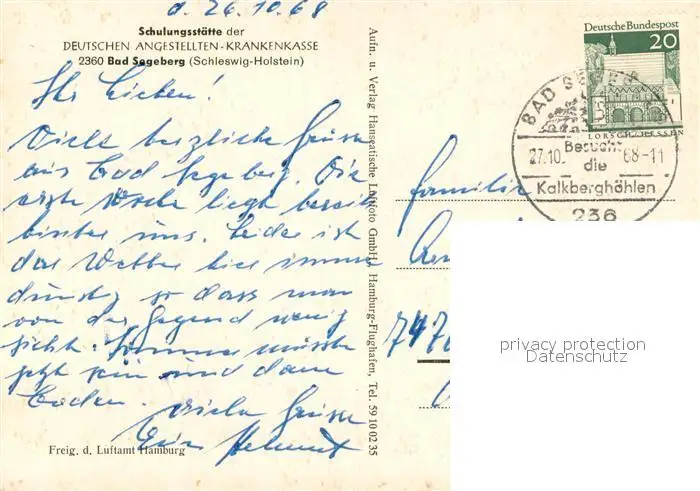 d. 26.10.68
Schulungsstätte der
DEUTSCHEN ANGESTELLTEN-KRANKENKASSE
2360 Bad Segeberg (Schleswig-Holstein)
Ihr Lieben!
Viele herzliche Grüsse
aus Bad Segeberg. Die
erste Woche liegt bereits
hinter uns. Leider ist
das Wetter hier immer
dunstig so dass man
von der Gegend wenig
sieht. Sommer müsste
jetzt sein und dann
baden.
Viele Grüsse
Euer Helmut
Freig. d. Luftamt Hamburg
Aufn. u. Verlag Hanseatische Luftfoto GmbH, Hamburg-Flughafen, Tel. 59 10 02 35
Deutsche Bundespost
20
LORSCH/HESSEN
BAD SEGEBERG
27.10. 68-11
Besucht
die
Kalkberghöhlen
236
Familie
747
privacy protection
Datenschutz